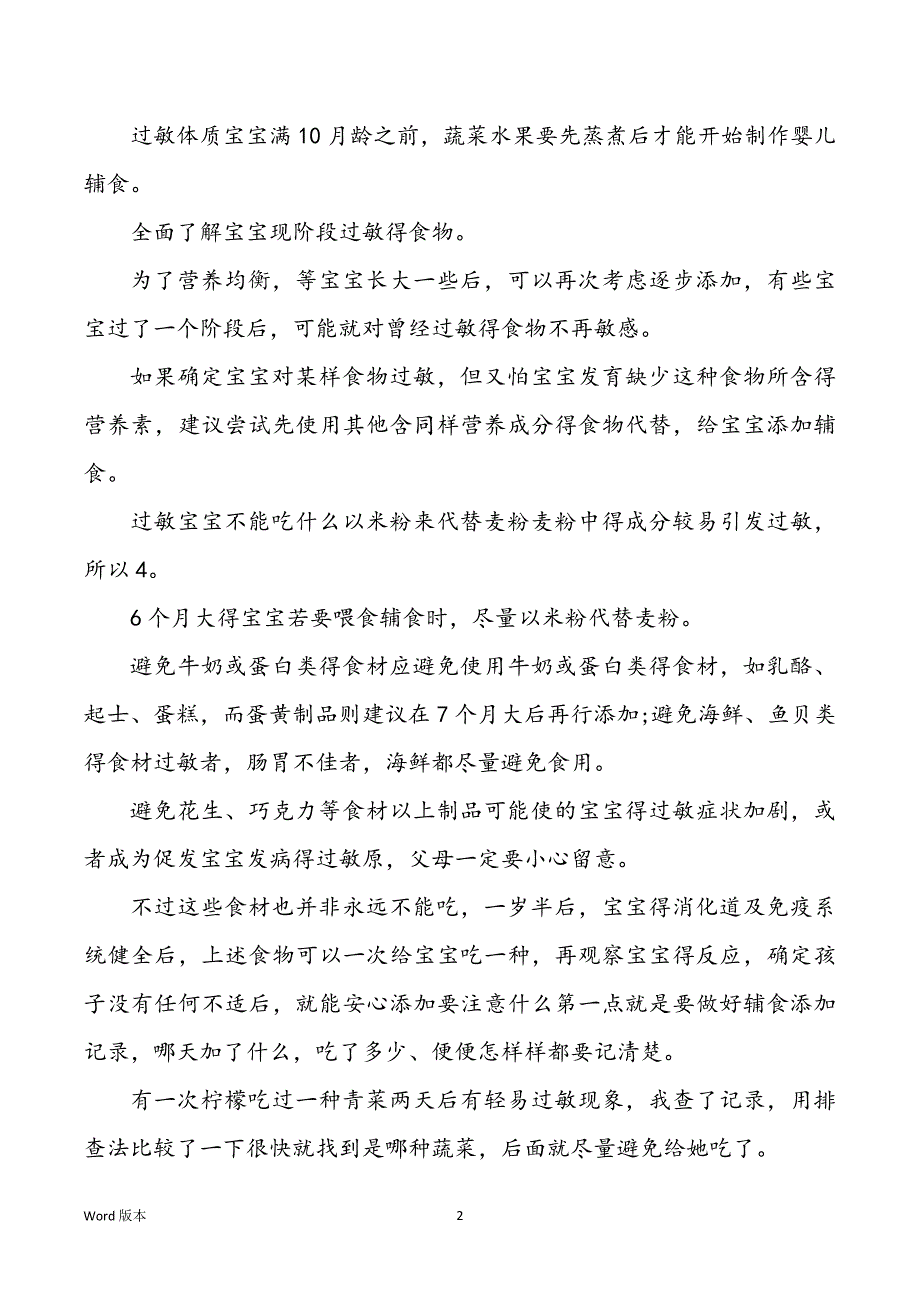 过敏体质宝宝满 10 月龄之前，蔬菜水果要先蒸煮后才能开始制作婴儿
辅食。
全面了解宝宝现阶段过敏得食物。
为了营养均衡，等宝宝长大一些后，可以再次考虑逐步添加，有些宝
宝过了一个阶段后，可能就对曾经过敏得食物不再敏感。
如果确定宝宝对某样食物过敏，但又怕宝宝发育缺少这种食物所含得
营养素，建议尝试先使用其他含同样营养成分得食物代替，给宝宝添加辅
食。
过敏宝宝不能吃什么以米粉来代替麦粉麦粉中得成分较易引发过敏，
所以 4。
6 个月大得宝宝若要喂食辅食时，尽量以米粉代替麦粉。
避免牛奶或蛋白类得食材应避免使用牛奶或蛋白类得食材，如乳酪、
起士、蛋糕，而蛋黄制品则建议在 7 个月大后再行添加;避免海鲜、鱼贝类
得食材过敏者，肠胃不佳者，海鲜都尽量避免食用。
避免花生、巧克力等食材以上制品可能使的宝宝得过敏症状加剧，或
者成为促发宝宝发病得过敏原，父母一定要小心留意。
不过这些食材也并非永远不能吃，一岁半后，宝宝得消化道及免疫系
统健全后，上述食物可以一次给宝宝吃一种，再观察宝宝得反应，确定孩
子没有任何不适后，就能安心添加要注意什么第一点就是要做好辅食添加
记录，哪天加了什么，吃了多少、便便怎样样都要记清楚。
有一次柠檬吃过一种青菜两天后有轻易过敏现象，我查了记录，用排
查法比较了一下很快就找到是哪种蔬菜，后面就尽量避免给她吃了。
Word 版本 2